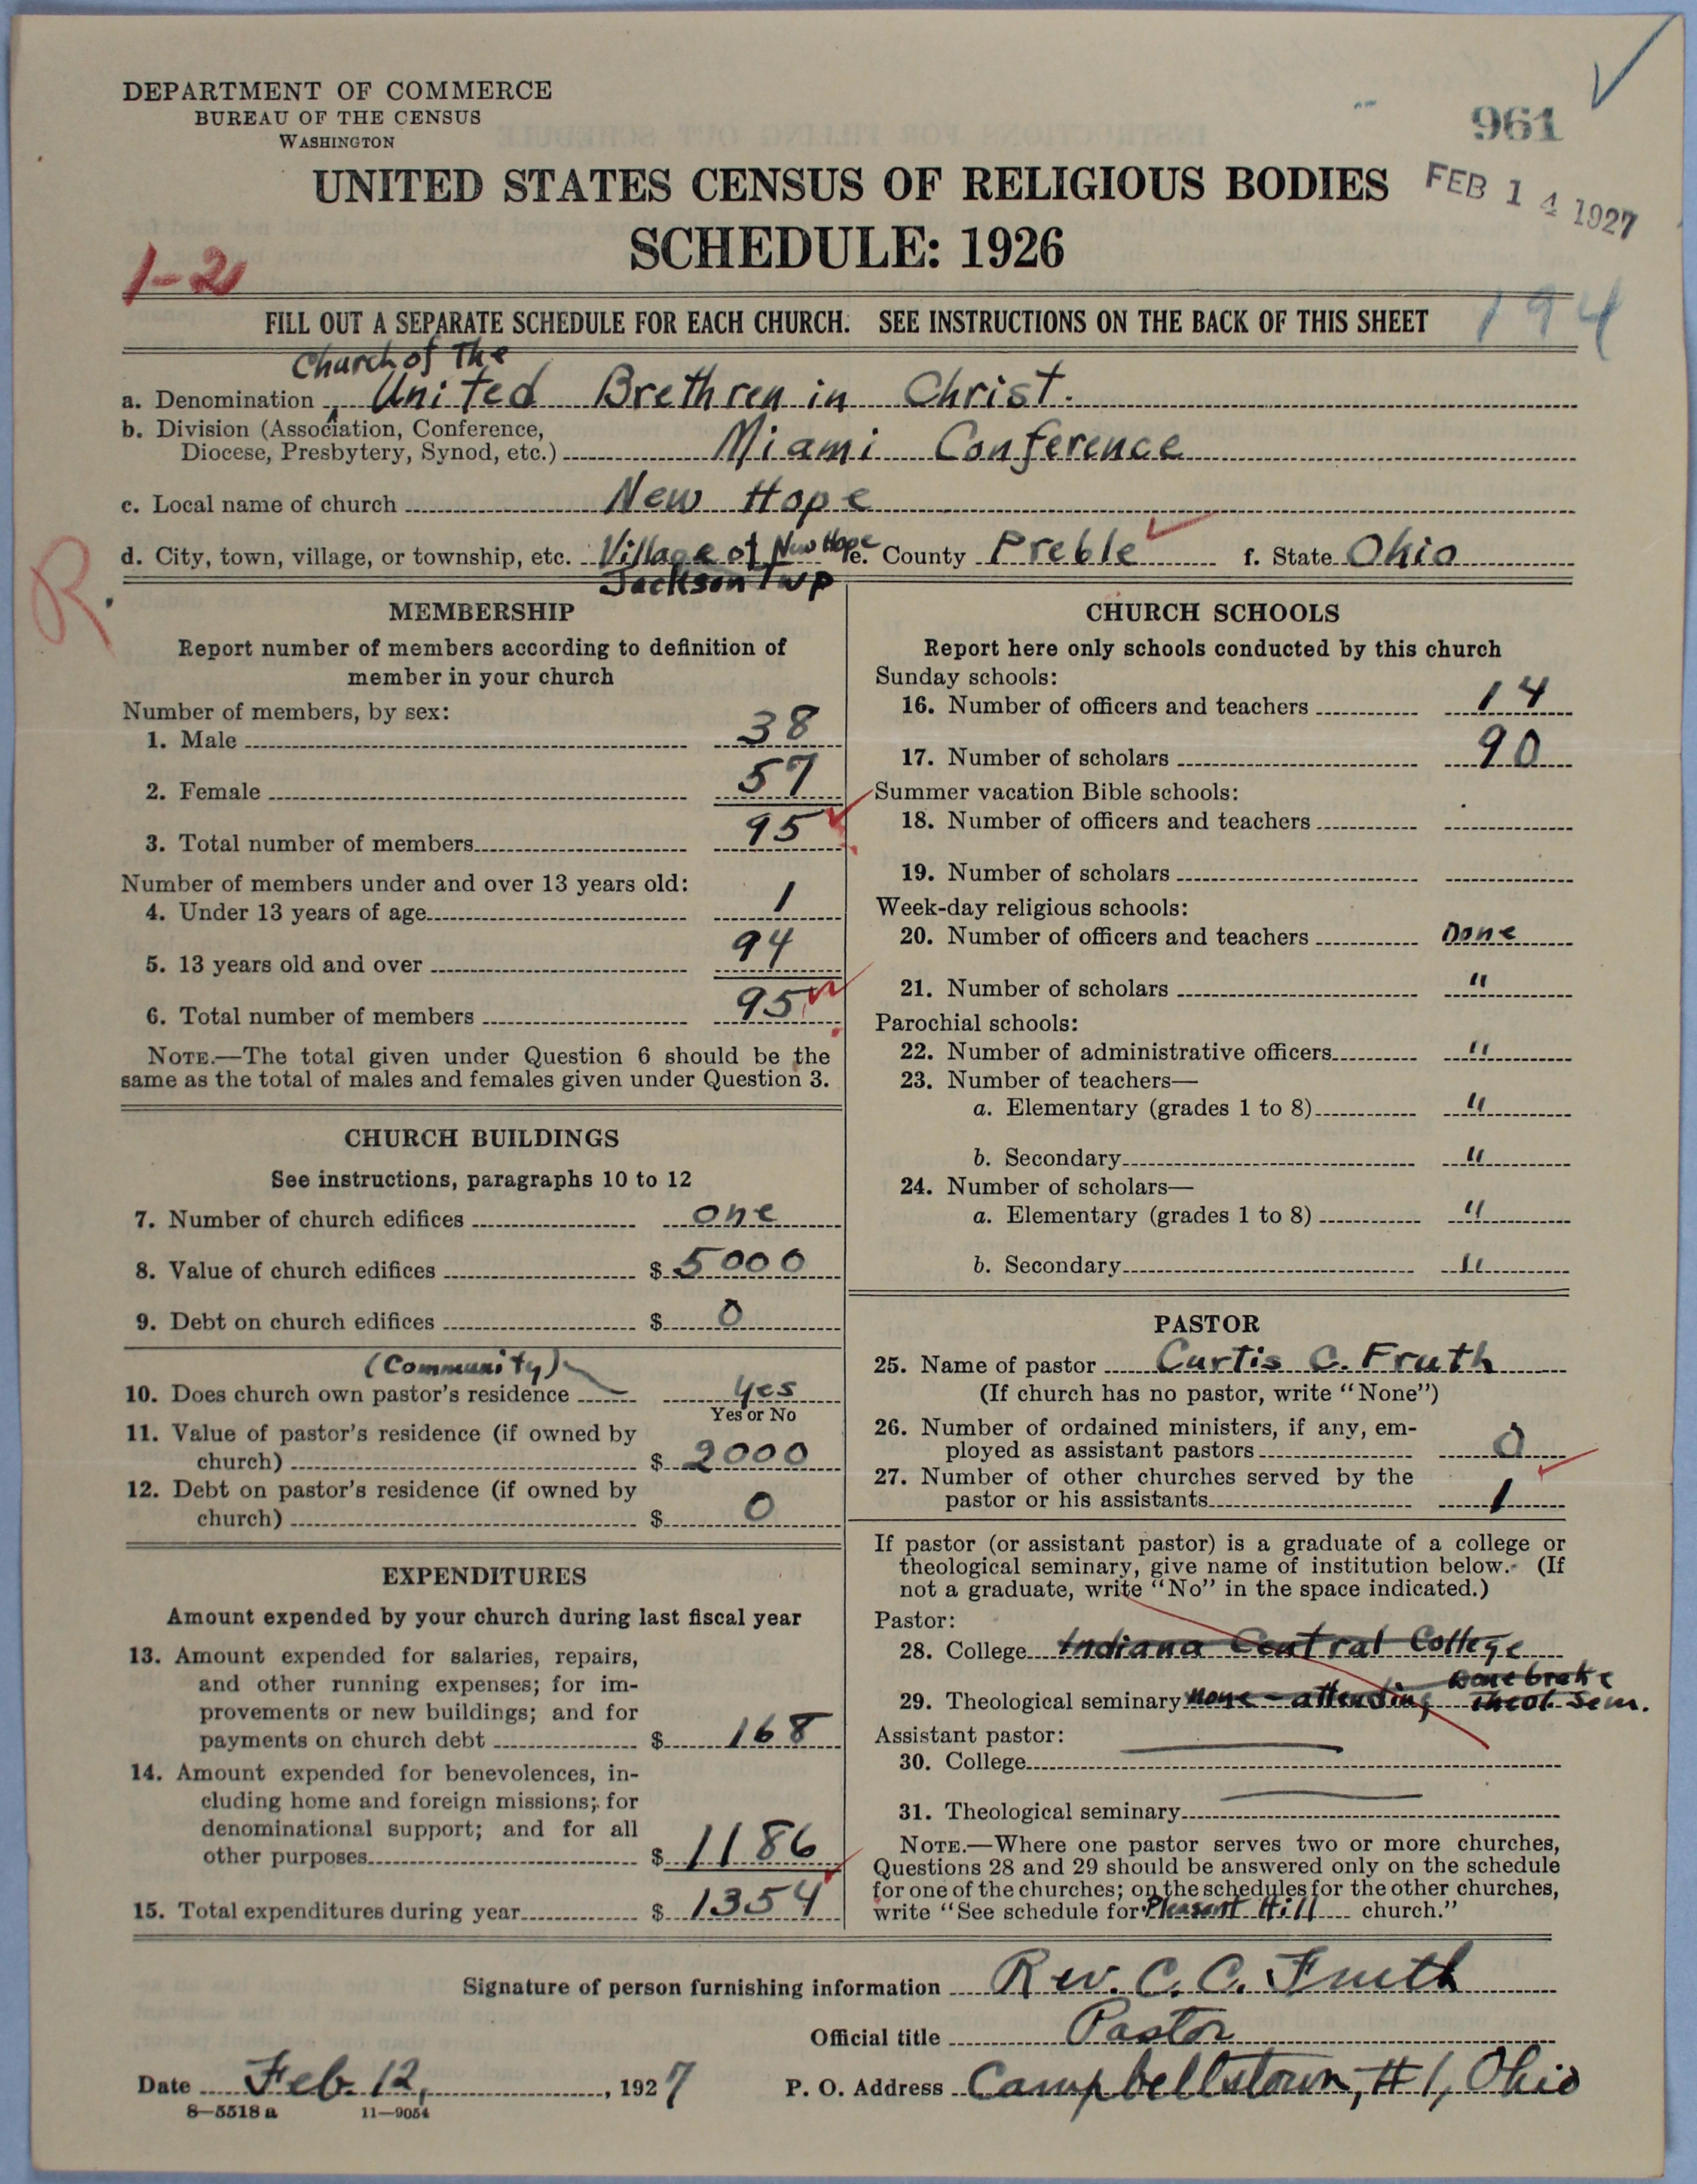 DEPARTMENT OF COMMERCE
BUREAU OF THE CENSUS
WASHINGTON
961
UNITED STATES CENSUS OF RELIGIOUS BODIES
FEB 14 1927
SCHEDULE: 1926
1-2
194
FILL OUT A SEPARATE SCHEDULE FOR EACH CHURCH. SEE INSTRUCTIONS ON THE BACK OF THIS SHEET
Church of The
a. Denomination United Brethren in Christ.
b. Division (Association, Conference,
Diocese, Presbytery, Synod, etc.) Miami Conference
c. Local name of church New Hope
d. City, town, village, or township, etc. Village of New Hope e. County Preble f. State Ohio
Jackson Twp
R.
MEMBERSHIP
Report number of members according to definition of
member in your church
Number of members, by sex:
1. Male 38
2. Female 57
3. Total number of members 95
Number of members under and over 13 years old:
4. Under 13 years of age 1
5. 13 years old and over 94
6. Total number of members 95
NOTE.—The total given under Question 6 should be the
same as the total of males and females given under Question 3.
CHURCH BUILDINGS
See instructions, paragraphs 10 to 12
7. Number of church edifices one
8. Value of church edifices $ 5000
9. Debt on church edifices $ 0
(Community)
10. Does church own pastor's residence yes
Yes or No
11. Value of pastor's residence (if owned by
church) $ 2000
12. Debt on pastor's residence (if owned by
church) $ 0
EXPENDITURES
Amount expended by your church during last fiscal year
13. Amount expended for salaries, repairs,
and other running expenses; for im-
provements or new buildings; and for
payments on church debt $ 168
14. Amount expended for benevolences, in-
cluding home and foreign missions; for
denominational support; and for all
other purposes $ 1186
15. Total expenditures during year $ 1354
CHURCH SCHOOLS
Report here only schools conducted by this church
Sunday schools:
16. Number of officers and teachers 14
17. Number of scholars 90
Summer vacation Bible schools:
18. Number of officers and teachers
19. Number of scholars
Week-day religious schools:
20. Number of officers and teachers none
21. Number of scholars "
Parochial schools:
22. Number of administrative officers "
23. Number of teachers—
a. Elementary (grades 1 to 8) "
b. Secondary "
24. Number of scholars—
a. Elementary (grades 1 to 8) "
b. Secondary "
PASTOR
25. Name of pastor Curtis C. Fruth
(If church has no pastor, write "None")
26. Number of ordained ministers, if any, em-
ployed as assistant pastors 0
27. Number of other churches served by the
pastor or his assistants 1
If pastor (or assistant pastor) is a graduate of a college or
theological seminary, give name of institution below. (If
not a graduate, write "No" in the space indicated.)
Pastor:
28. College Indiana Central College
Bonebrake
29. Theological seminary none - attending Theol. Sem.
Assistant pastor:
30. College
31. Theological seminary
NOTE.—Where one pastor serves two or more churches,
Questions 28 and 29 should be answered only on the schedule
for one of the churches; on the schedules for the other churches,
write "See schedule for Pleasant Hill church."
Signature of person furnishing information Rev. C. C. Fruth
Official title Pastor
Date Feb. 12, 1927 P. O. Address Campbellstown, #1, Ohio
8—5518 a 11—9054